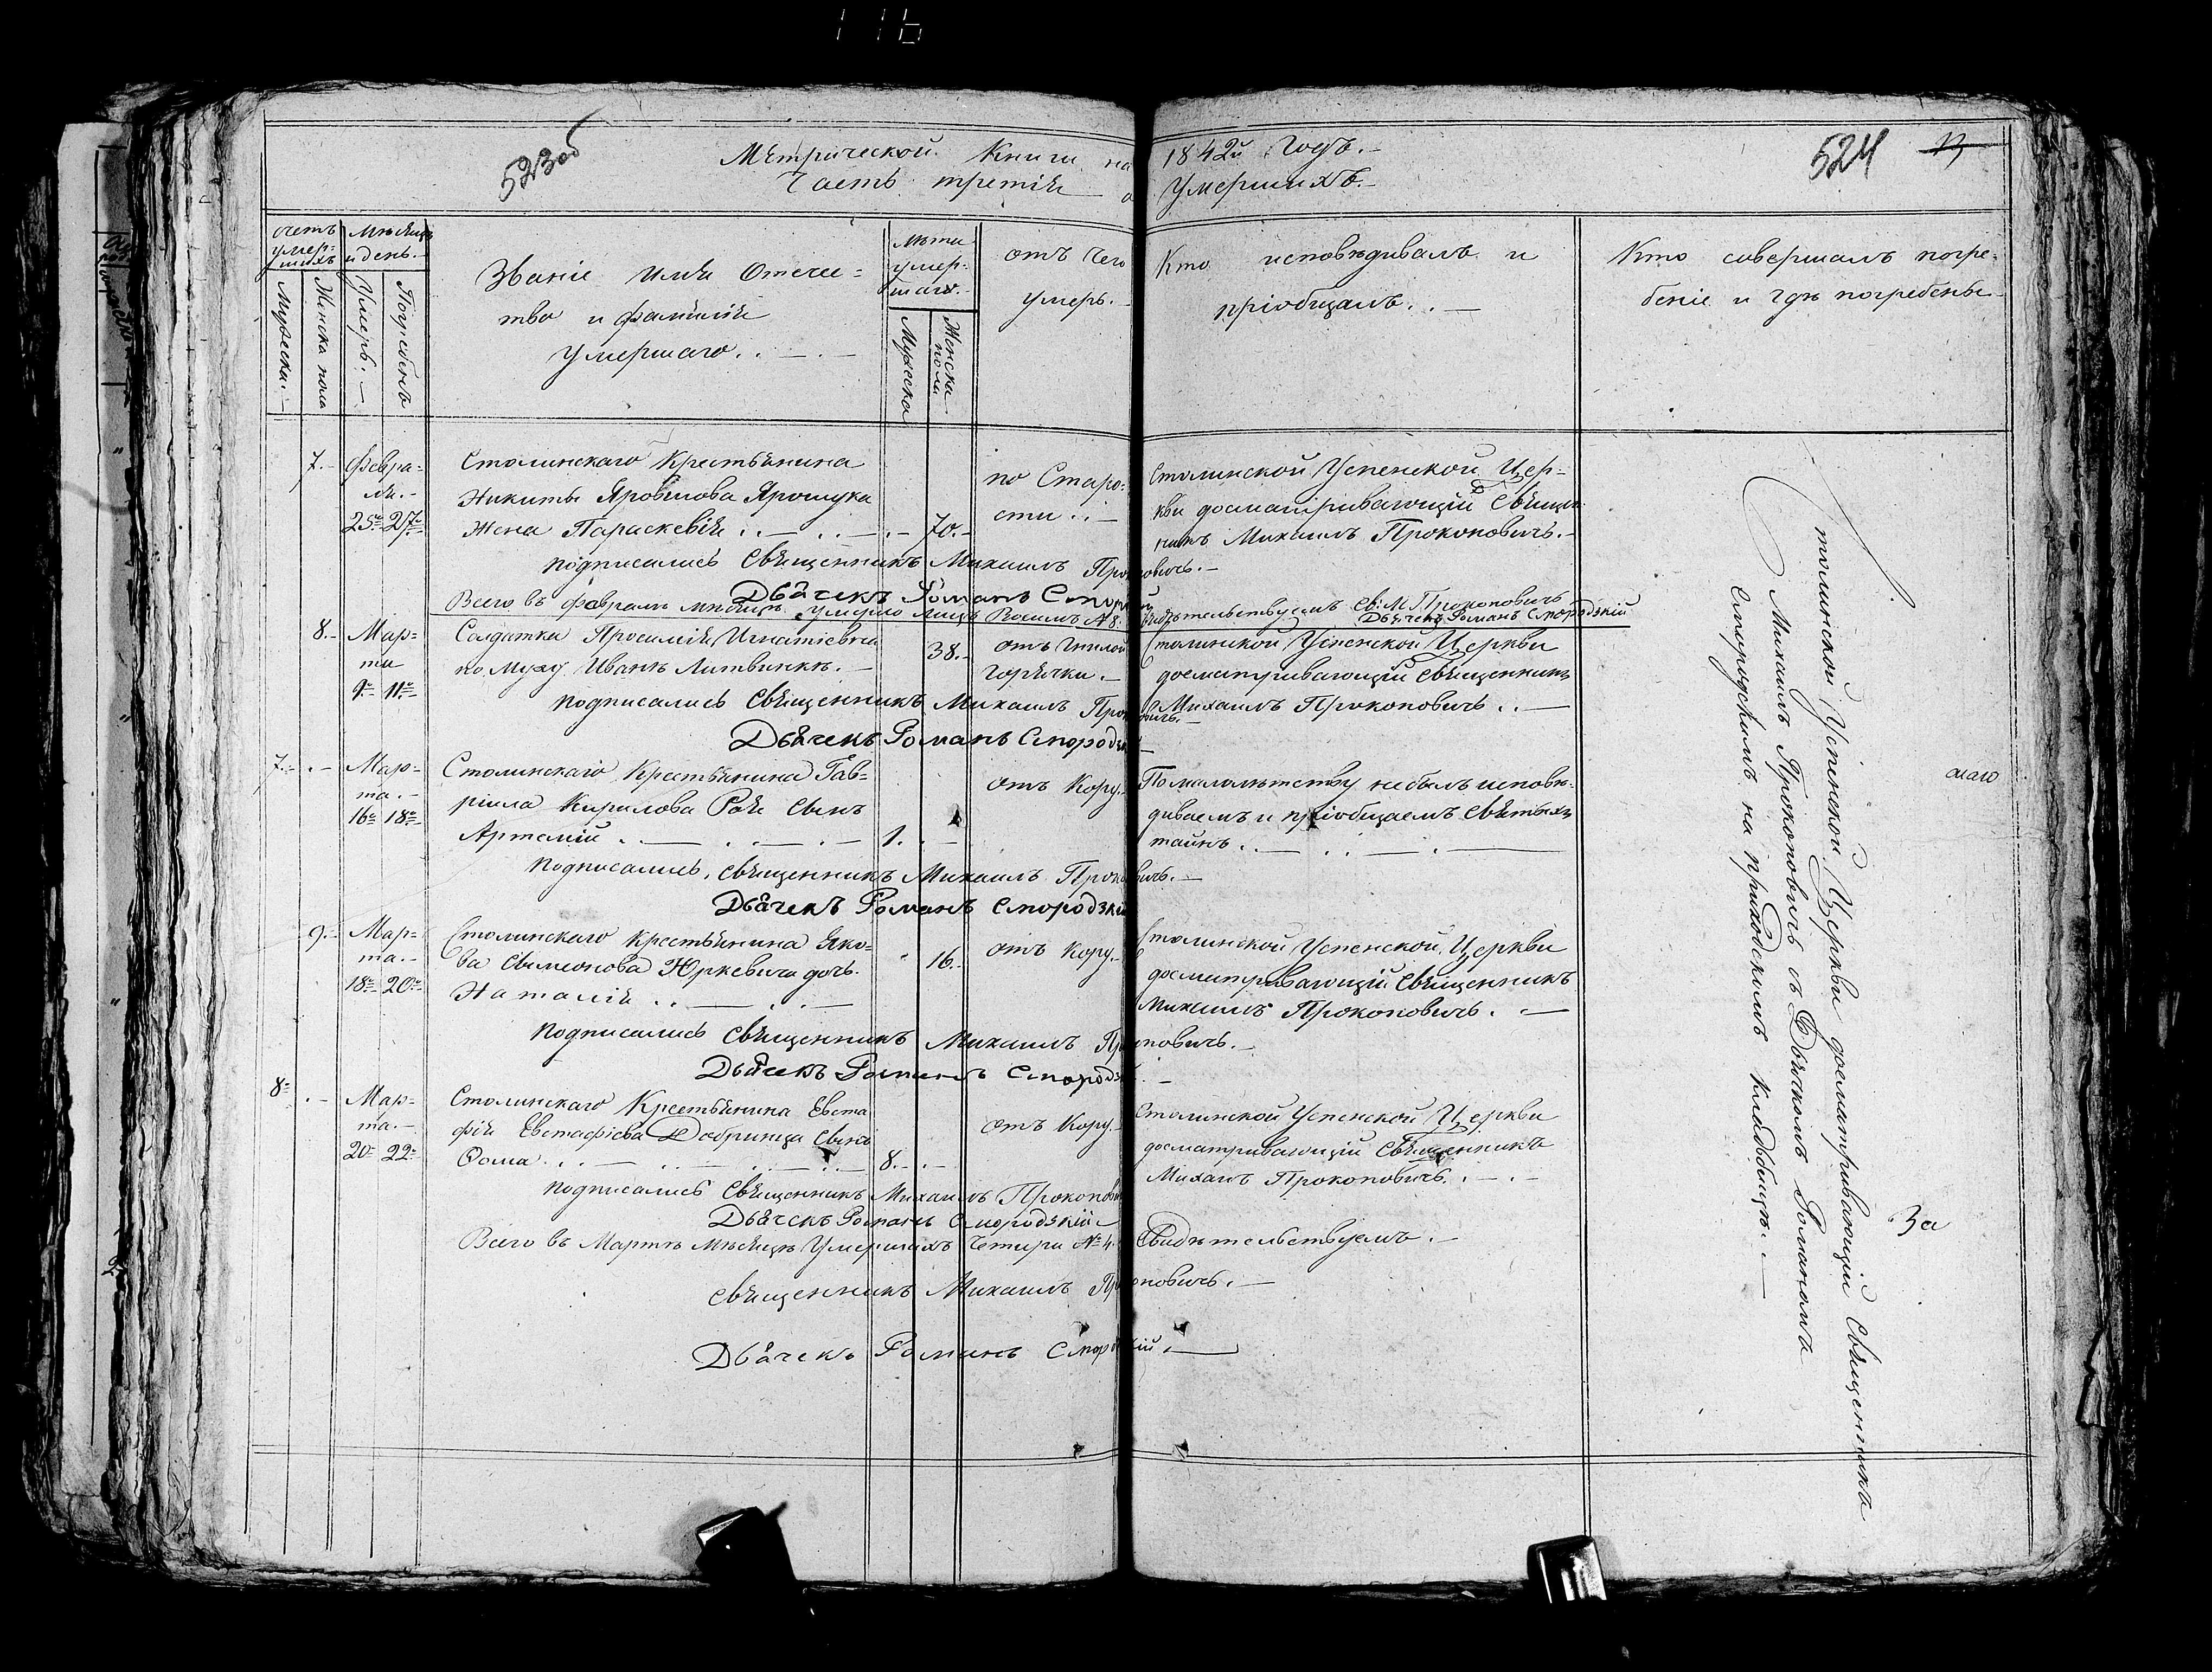 116
523об
Метрической Книги на 1842й Годъ.-
Часть третія о Умершихъ.-
524 13
счетъ умер=шихъ
Мужеска.-
Женска пола
Мѣсяцъ и день.-
Умеръ.-
Погребенъ
Званіе Имя Отече=
тво и фамилія
Умершаго.
лѣта умер=шаго.-
Мужеска
Женска пола
отъ чего
умеръ.-
Кто исповѣдивалъ и
пріобщалъ.
Кто совершалъ погре=
беніе и гдѣ погребены
7.- Февра= Столинскаго Крестьянина по Старо= Столинской Успенской Цер=
ля.- Никиты Ярошука сти кви досматривающій Священ
25го 27го Жена Параскевія 70.- никъ Михаилъ Прокоповичь.-
подписались Священникъ Михаилъ Прокоповичь.-
Дьячекъ Романъ Смородзкій
Всего въ Февралѣ мѣсяцѣ умерло лицъ №8. Свидѣтельствуемъ Св: М Прокоповичь
Дьячекъ Романъ Смородзкій
8.- Мар= Солдатка Игнатіевна 38.- отъ Гнилой Столинской Успенской Церкви
та по Мужу Иванѣ Литвинкѣ.- горячки.- досматривающій Священникъ
9го 11го подписались Священникъ Михаилъ Прокоповичь.- Михаилъ Прокоповичь
Дьячекъ Романъ Смородзкій
7.- Мар= Столинскаго Крестьянина Гав= отъ Кору.- По малолѣтству небылъ исповѣ=
та.- ріила Кирилова Сынъ диваемъ и пріобщаемъ Святыхъ
16го 18го Артемій 1. таинъ
подписались, священникъ Михаилъ Прокоповичь.-
Дьячекъ Романъ Смородзкій
9.- Мар= Столинскаго Крестьянина Яко= 16.- отъ Кору.- Столинской Успенской Церкви
та.- ва Симеонова Юркевича дочь досматривающій Священникъ
18го 20го Наталія Михаилъ Прокоповичь.
подписались Священникъ Михаилъ Прокоповичь.-
Дьячекъ Романъ Смородзкій
8= Мар= Столинскаго Крестьянина Евста отъ Кору.- Столинской Успенской Церкви
та.- фія Евстафіева Сынъ досматривающій Священникъ
20го 22го Ѳома 8. Михаилъ Прокоповичь.
подписались Священникъ Михаилъ Прокоповичь
Дьячекъ Романъ Смородзкій
Всего въ Мартѣ Мѣсяцѣ Умершихъ Четыри №4. Свидѣтельствуемъ.-
Священникъ Михаилъ Прокоповичь.-
Дьячекъ Романъ Смородзкій.
Столинской Успенской Церкви досматривающій Священникъ
Михаилъ Прокоповичь съ Дьячкомъ Романомъ
Смородскимъ на приходскимъ кладбищѣ.-
За